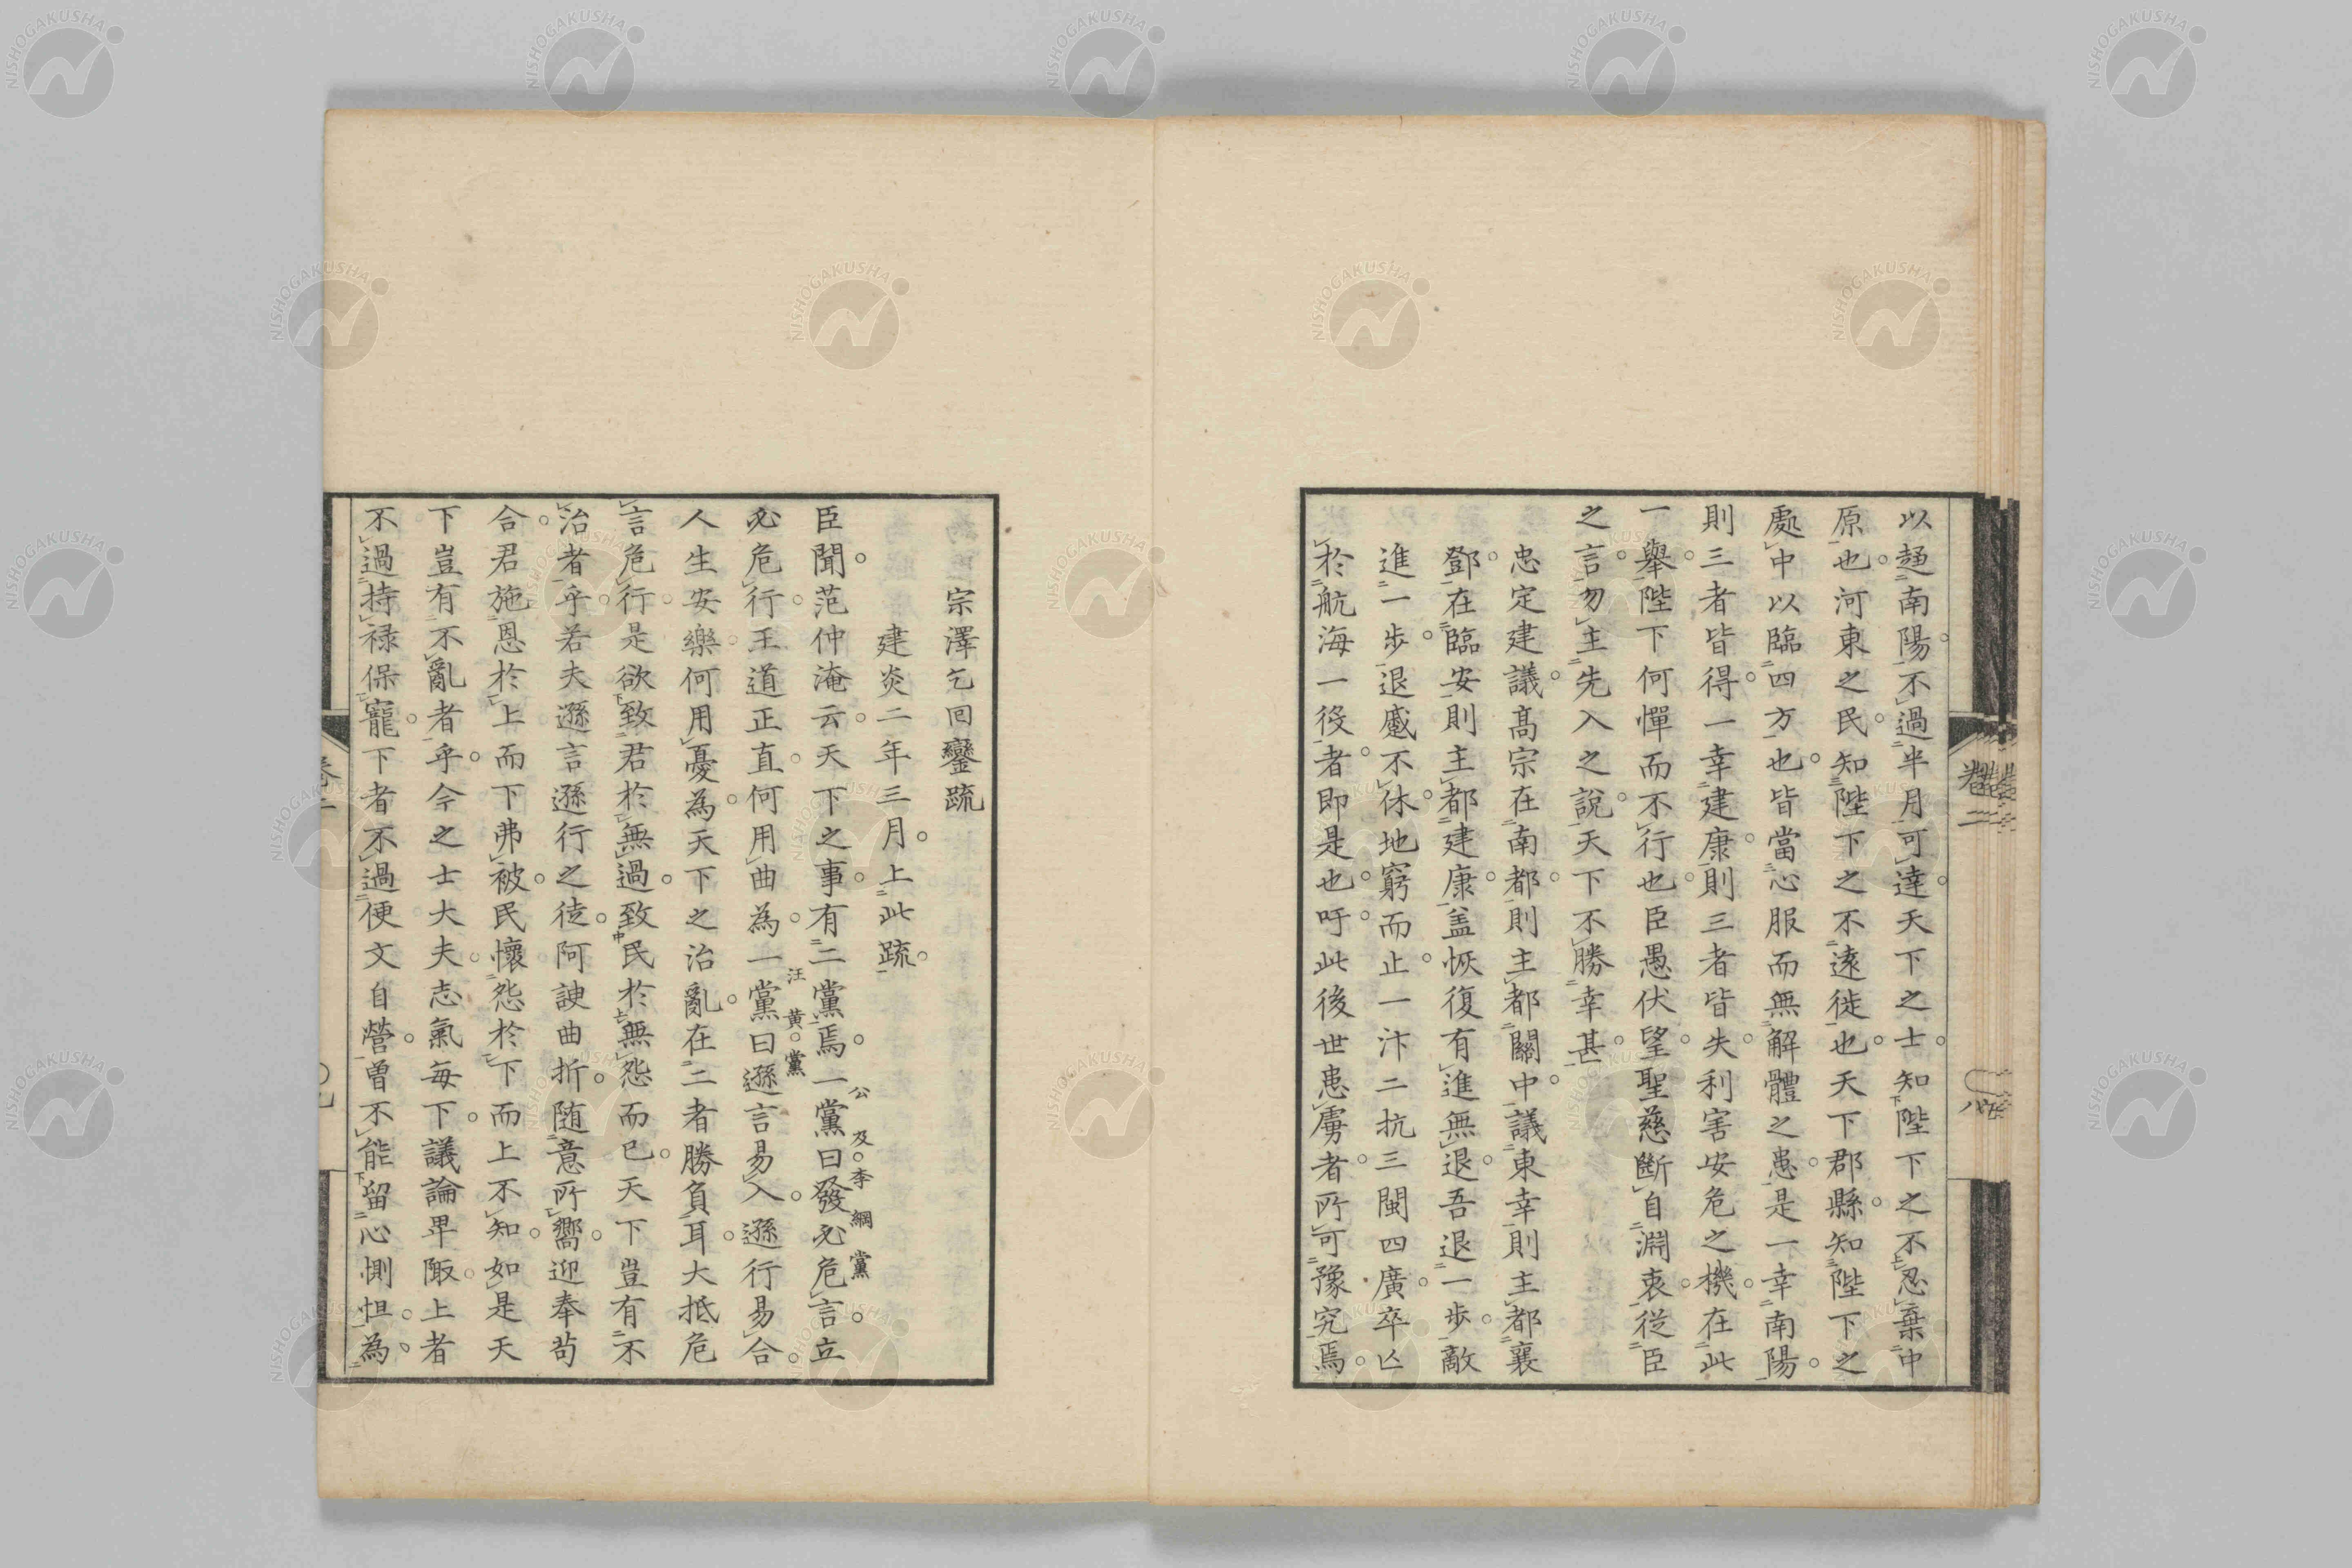 以趨南陽不過半月可達天下之士知陛下之不忍棄中
原也河東之民知陛下之不遠徙也天下郡縣知陛下之
處中以臨四方也皆當心服而無解體之患是一幸南陽
則三者皆得一幸建康則三者皆失利害安危之機在此
一舉陛下何憚而不行也臣愚伏望聖慈斷自淵衷從臣
之言勿主先入之說天下不勝幸甚
忠定建議髙宗在南都則主都關中議東幸則主都襄
鄧在臨安則主都建康盖恢復有進無退吾退一步敵
進一步退蹙不休地窮而止一汴二抗三閩四廣卒亾
於航海一役者即是也吁此後世患虜者所可豫究焉
宗澤乞回鑾疏
建炎二年三月上此疏
臣聞范仲淹云天下之事有二黨焉一黨曰發必危言立
公及李綱黨
必危行王道正直何用曲為一黨曰遜言易入遜行易合
汪黄黨
人生安樂何用憂為天下之治亂在二者勝負耳大抵危
言危行是欲致君於無過致民於無怨而已天下豈有不
治者乎若夫遜言遜行之徒阿諛曲折随意所嚮迎奉苟
合君施恩於上而下弗被民懷怨於下而上不知如是天
下豈有不亂者乎今之士大夫志氣毎下議論卑陬上者
不過持禄保寵下者不過便文自營曽不能留心惻怛為
卷二
NISHOGAKUSHA